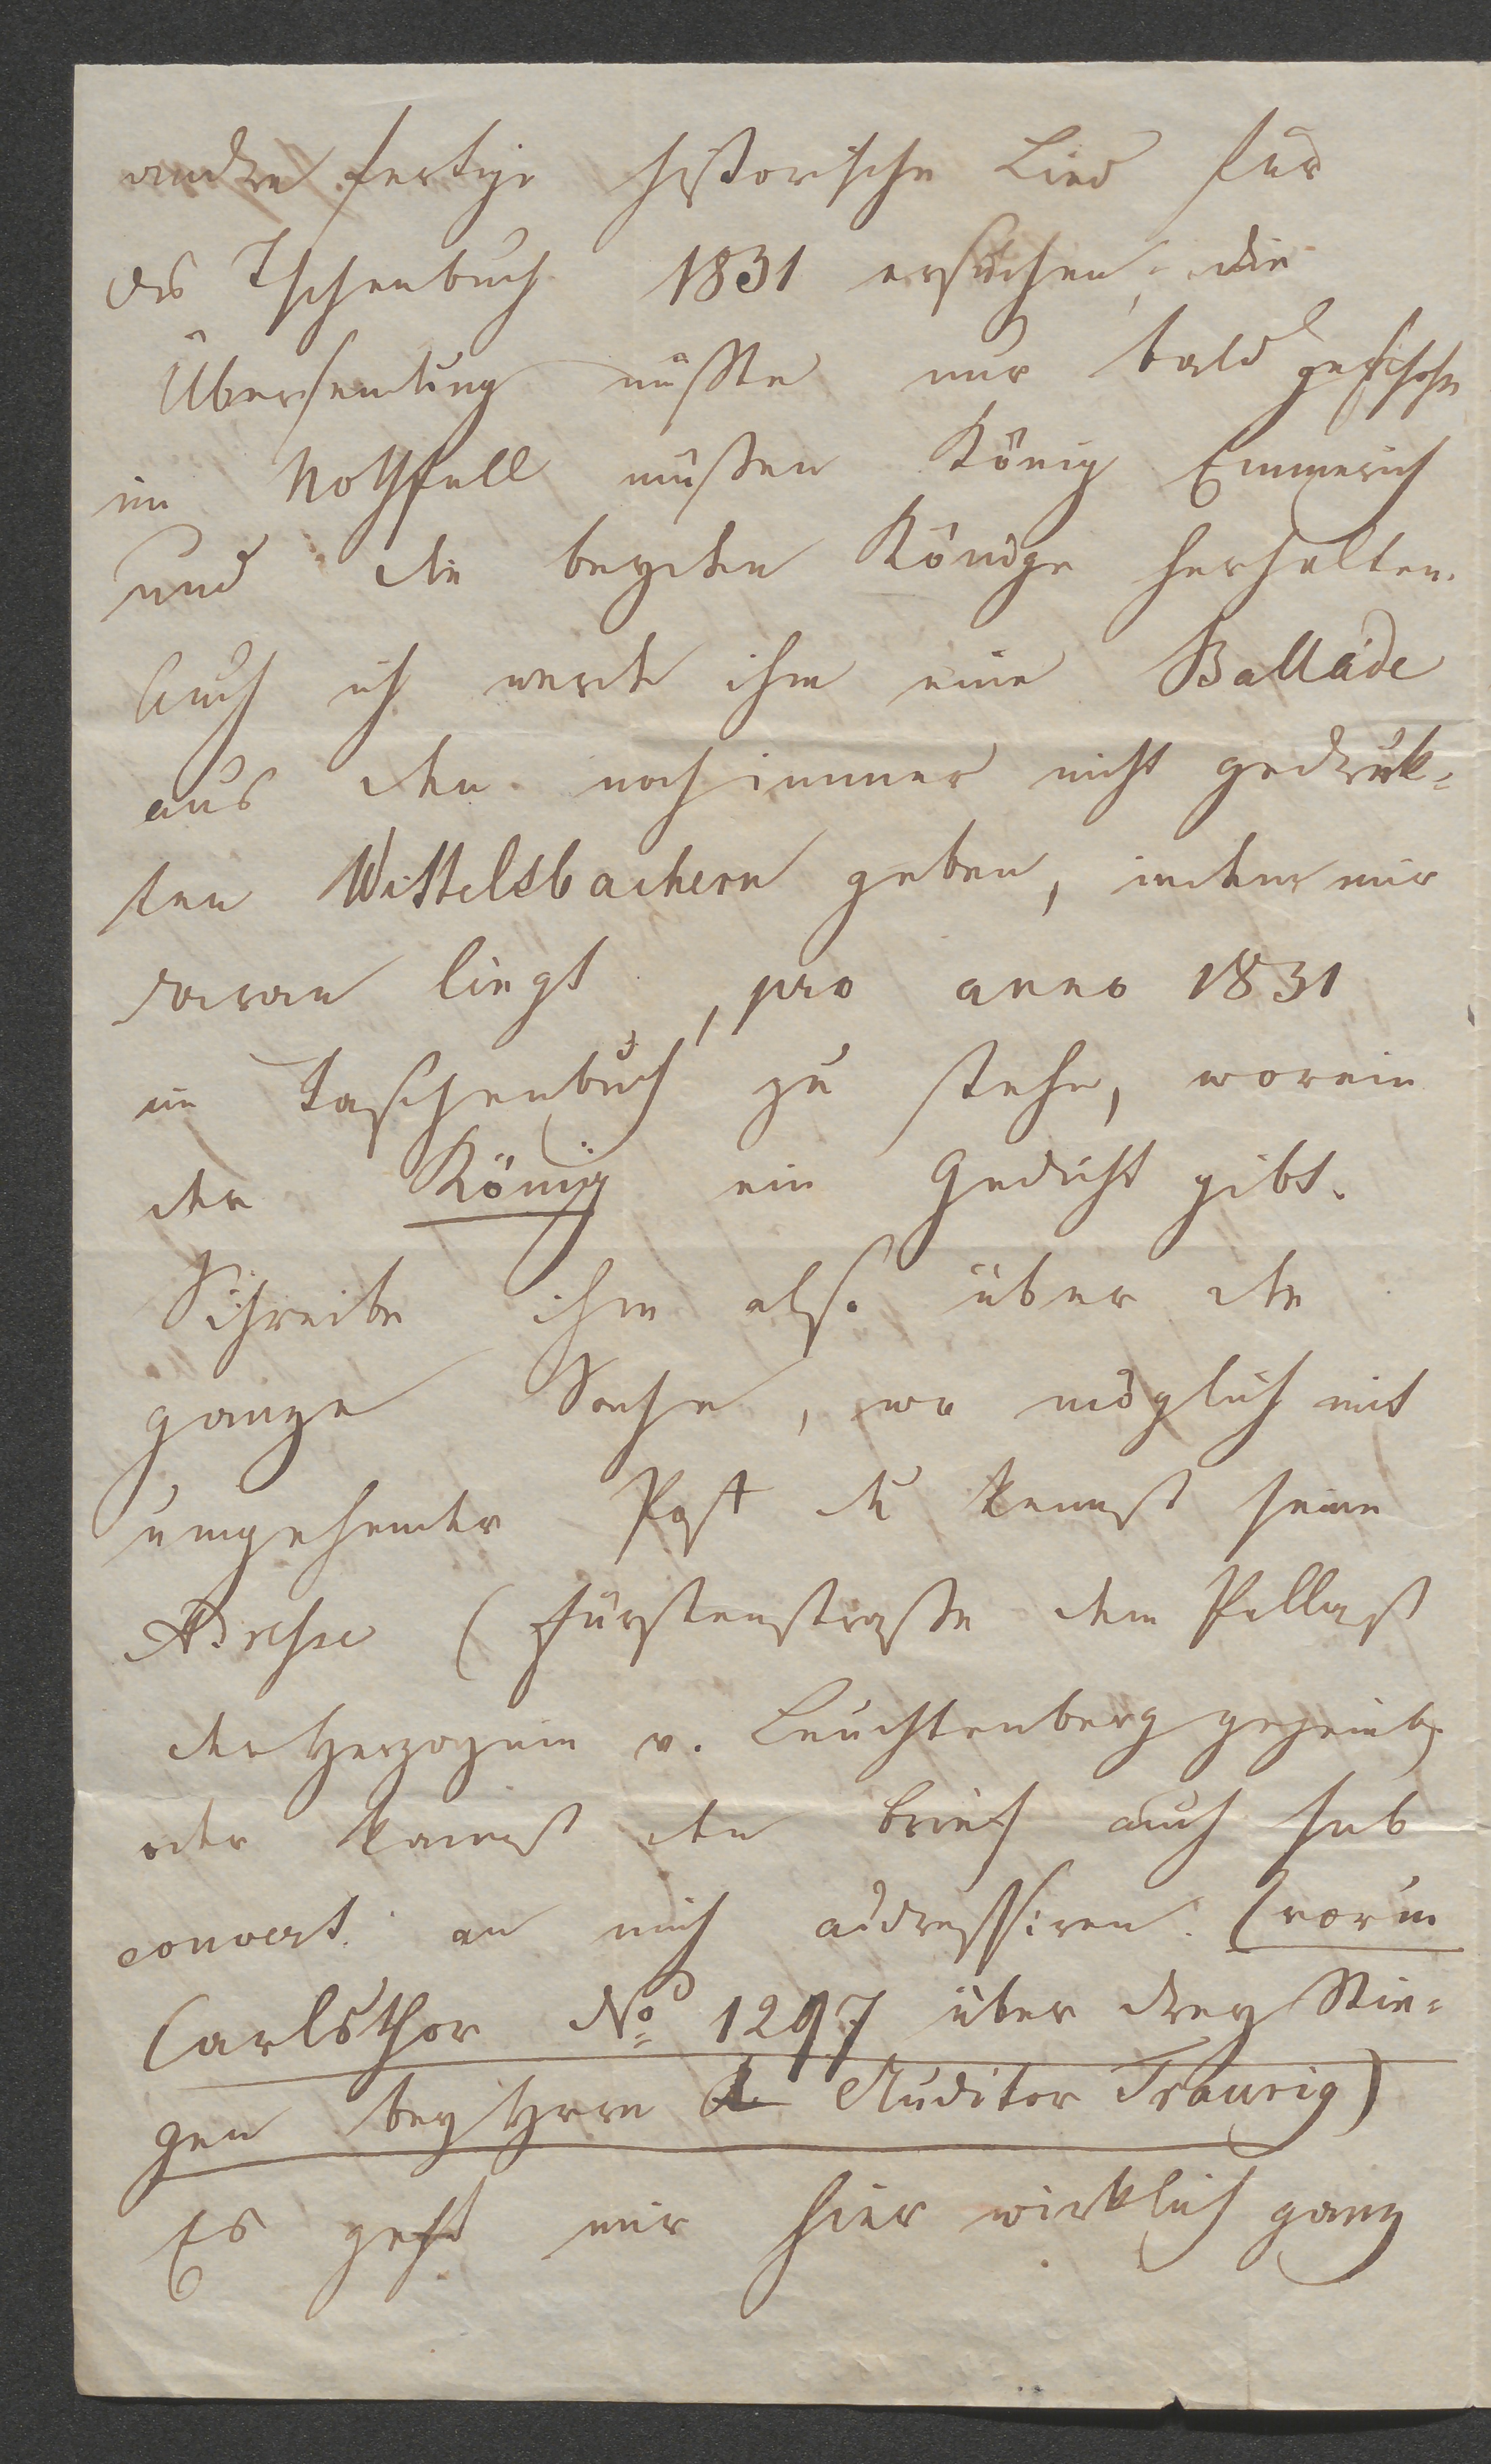 andre fertige historische Lied für
das Tschenbuch 1831 ersuchen, die
Übersendung müßte nur bald geschehn
im Nothfall müßen König Emmerich
und die beyden Könige herhalten.
Auch ich werde ihm eine Ballade
aus den noch immer nicht gedruk-
ten Wittelsbachern geben, indem mir
daran liegt, pro anno 1831
im Taschenbuch zu stehn, worein
der König ein Gedicht gibt.
Schreibe ihm also über die
ganze Sache, wo möglich mit
umgehender Post du kennst seine
Adresse (Fürstenstrasse dem Pallast
der Herzoginn v. Leuchtenberg gegenüb.
oder kannst den Brief auch sub
couvert. an mich addressiren. (vorm
Carlsthor No 1297 über drey Stie-
gen bey Herrn Auditor Traurig)
Es geht mir hier wirklich ganz